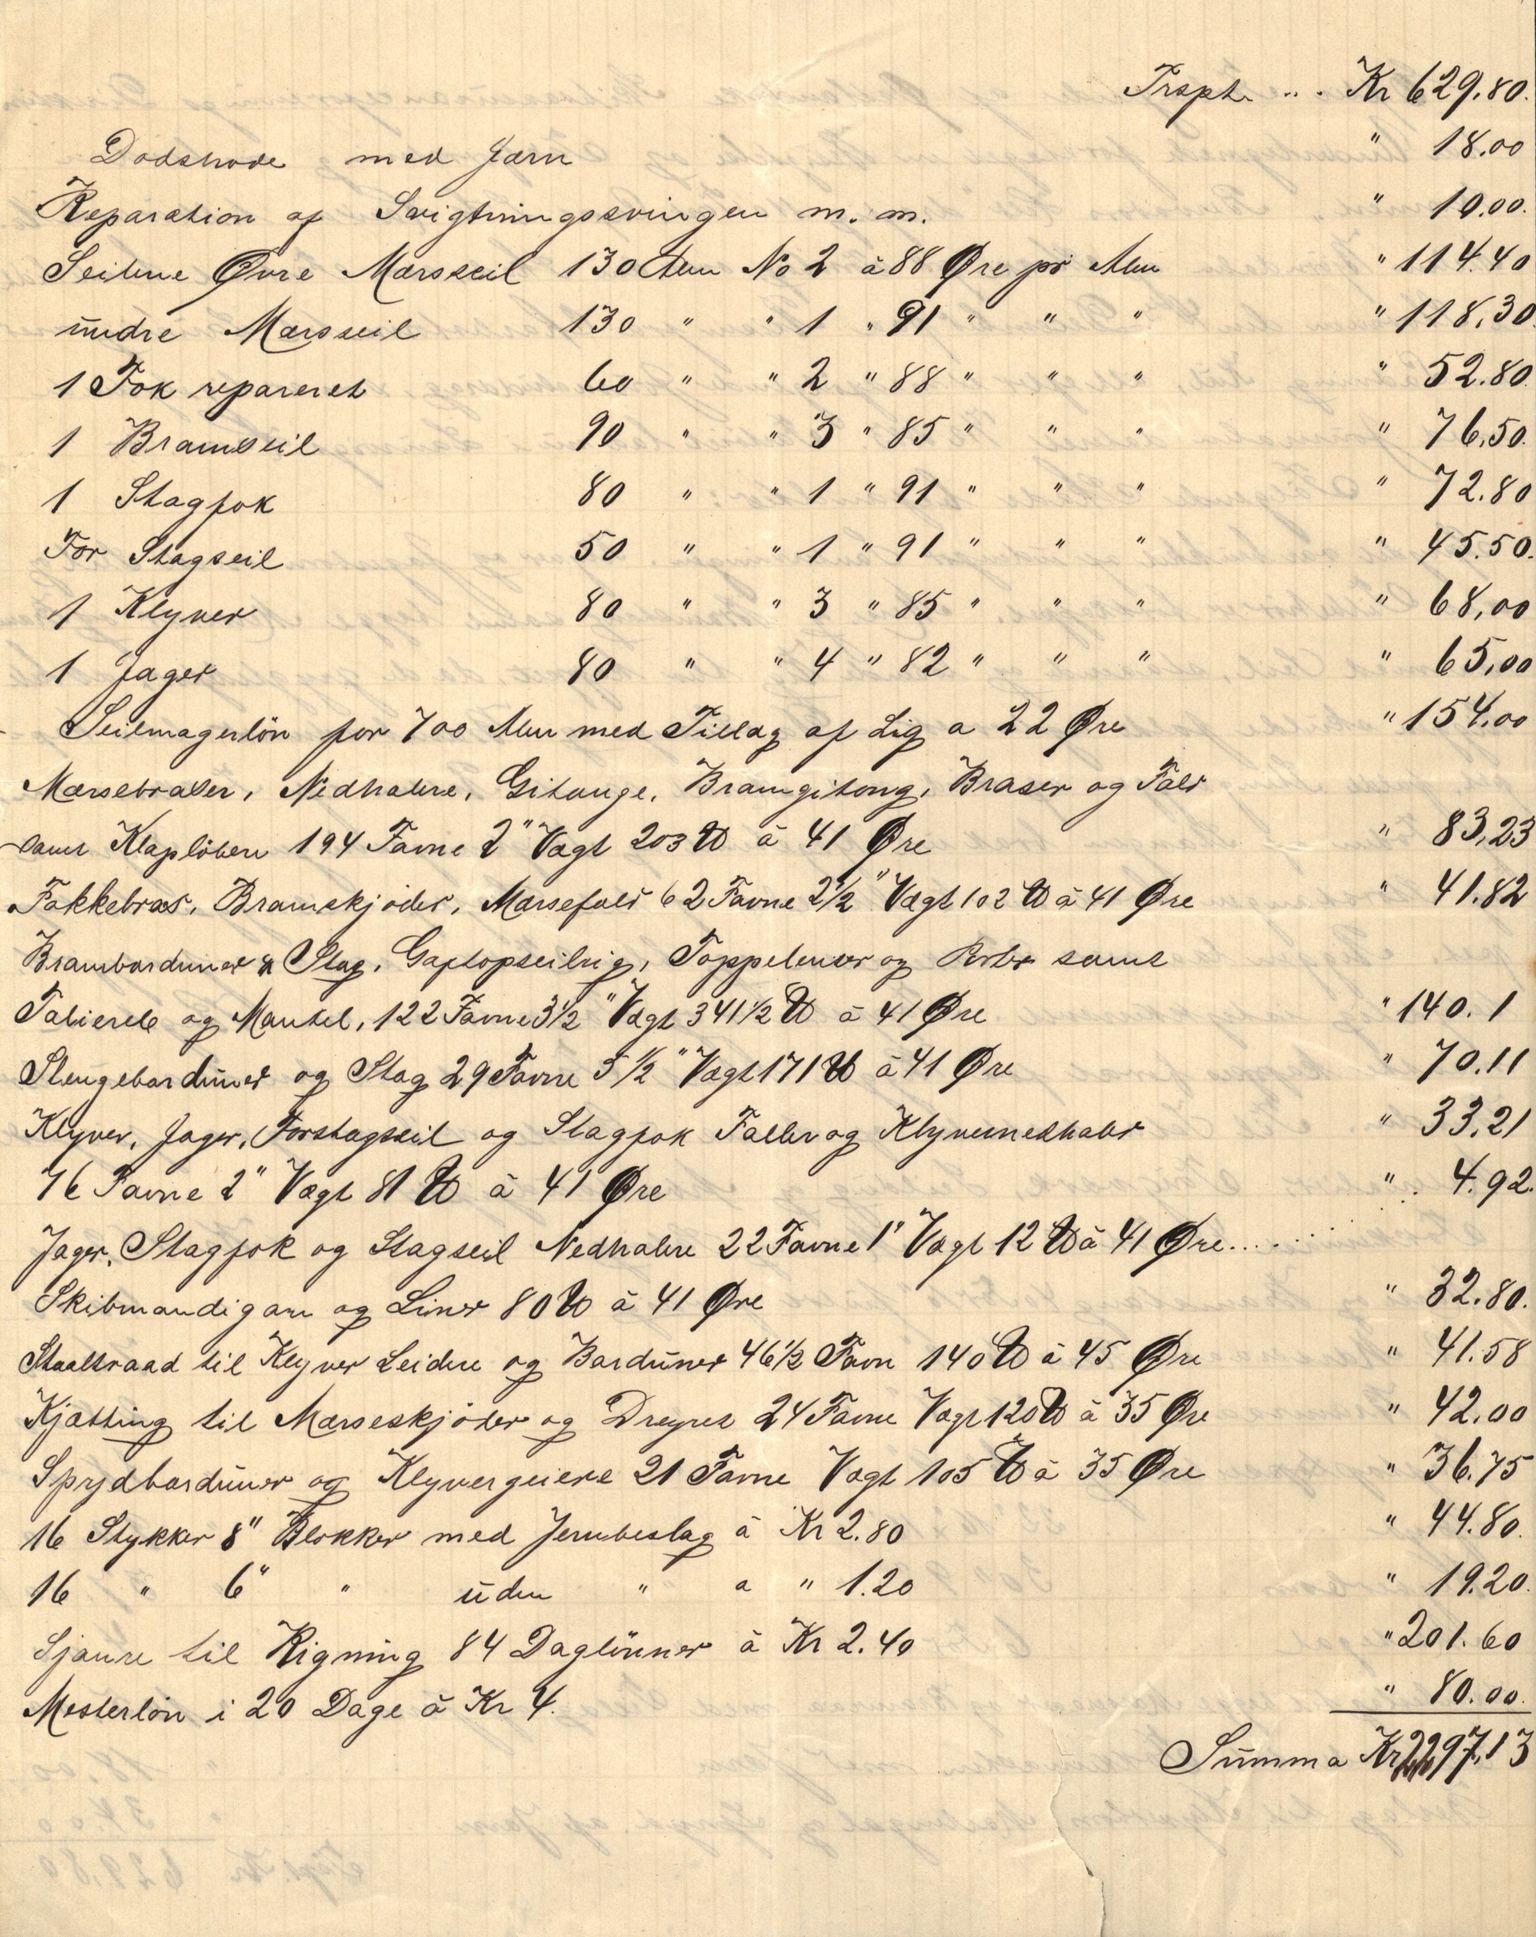 Trspt. ... Kr 629.80.
Dodshode med Jærn " 18.00
Reparation af Svigtningssvingen m. m. " 10.00.
Seilene Øvre Mærsseil 130 Alen No 2 à 88 Øre pr Alen " 114.40
undre Mærsseil 130 " " 1 " 91 " " " " 118,30
1 Fok repareret 60 " " 2 " 88 " " " " 52.80.
1 Bramseil 90 " " 3 " 85 " " " " 76,50.
1 Stagfok 80 " " 1 " 91 " " " " 72.80
For Stagseil 50 " " 1 " 91 " " " " 45.50.
1 Klyver 80 " " 3 " 85 " " " " 68,00
1 Jager 80 " " 4 " 82 " " " " 65,00
Seilmagerlön for 700 Alen med Tillæg af Lig a 22 Øre " 154.00
Mærsebraser, Nedhalere, Gitauge, Bramgitong, Braser og Fald
samt Klapløbere 194 Favne 2" Vægt 203 ℔ à 41 Øre " 83,23
Fokkebras, Bramskjøder, Mærsefald 62 Favne 2½" Vægt 102 ℔ à 41 Øre " 41.82
Brambarduner & Stag, Gaftopseilrig, Toppelenter og samt
Talierels og Mantel, 122 Favne 3½" Vægt 341½ ℔ à 41 Øre " 140. 1
Stengebarduner og Stag 29 Favne 5½" Vægt 171 ℔ à 41 Øre " 70.11
Klyver, Jager, Forstagseil og Stagfok Falder og Klyvernedhaler " 33,21
76 Favne 2" Vægt 81 ℔ à 41 Øre " 4.92.
Jager, Stagfok og Stagseil Nedhalere 22 Favne 1" Vægt 12 ℔ à 41 Øre......
Skibmandsgarn og Liner 80 ℔ à 41 Øre " 32.80.
Staaltraad til Klyver Leidere og Barduner 46½ Favn 140 ℔ à 45 Øre " 41.58
Kjætting til Mærseskjøder og Dreyreb 24 Favne Vægt 120 ℔ à 35 Øre " 42.00
Sprydbarduner og Klyvergeiere 21 Favne Vægt 105 ℔ à 35 Øre " 36.75
16 Stykker 8" Blokker med Jernbeslag à Kr 2.80 " 44.80.
16 " 6" " uden " a " 1.20 " 19.20.
Sjauere til Rigning 84 Daglönner à Kr 2.40 " 201.60
Mesterlön i 20 Dage à Kr 4. " 80.00.
Summa Kr 2297.13